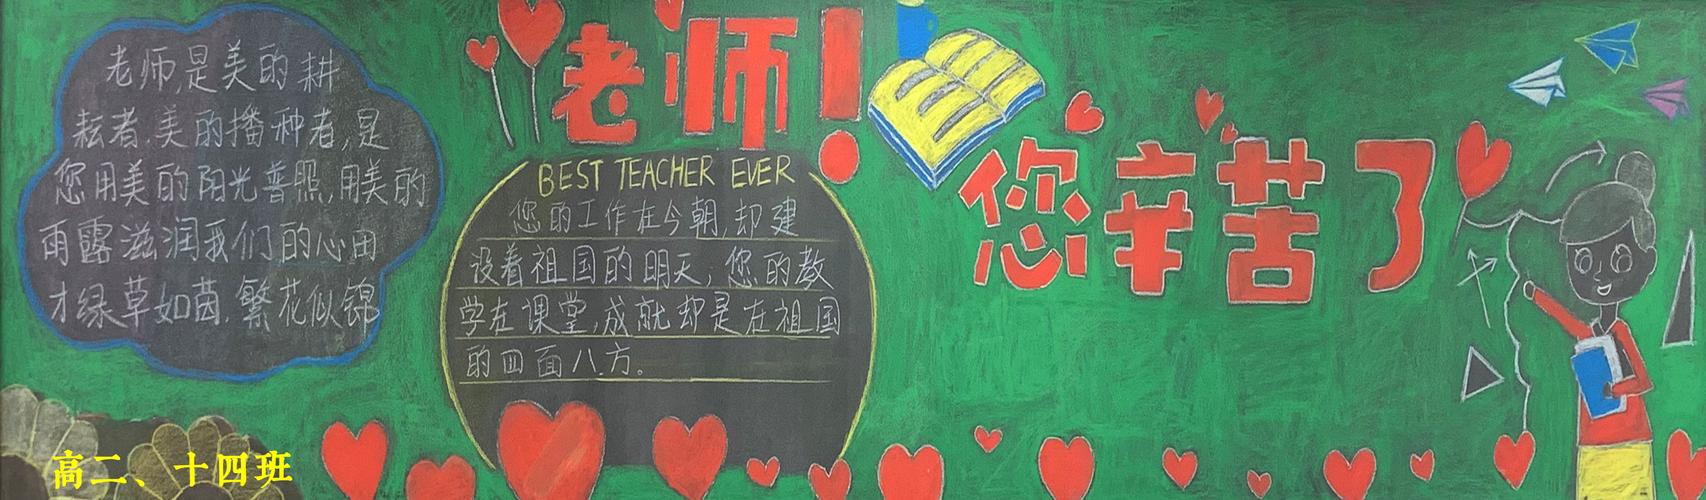 老师,是美的耕
耘者.美的播种者,是
您用美的阳光普照,用美的
雨露滋润我们的心田
才绿草如茵.繁花似锦
老师!
BEST TEACHER EVER
您的工作在今朝,却建
设着祖国的明天,您的教
学在课堂,成就却是在祖国
的四面八方。
您辛苦了
高二、十四班